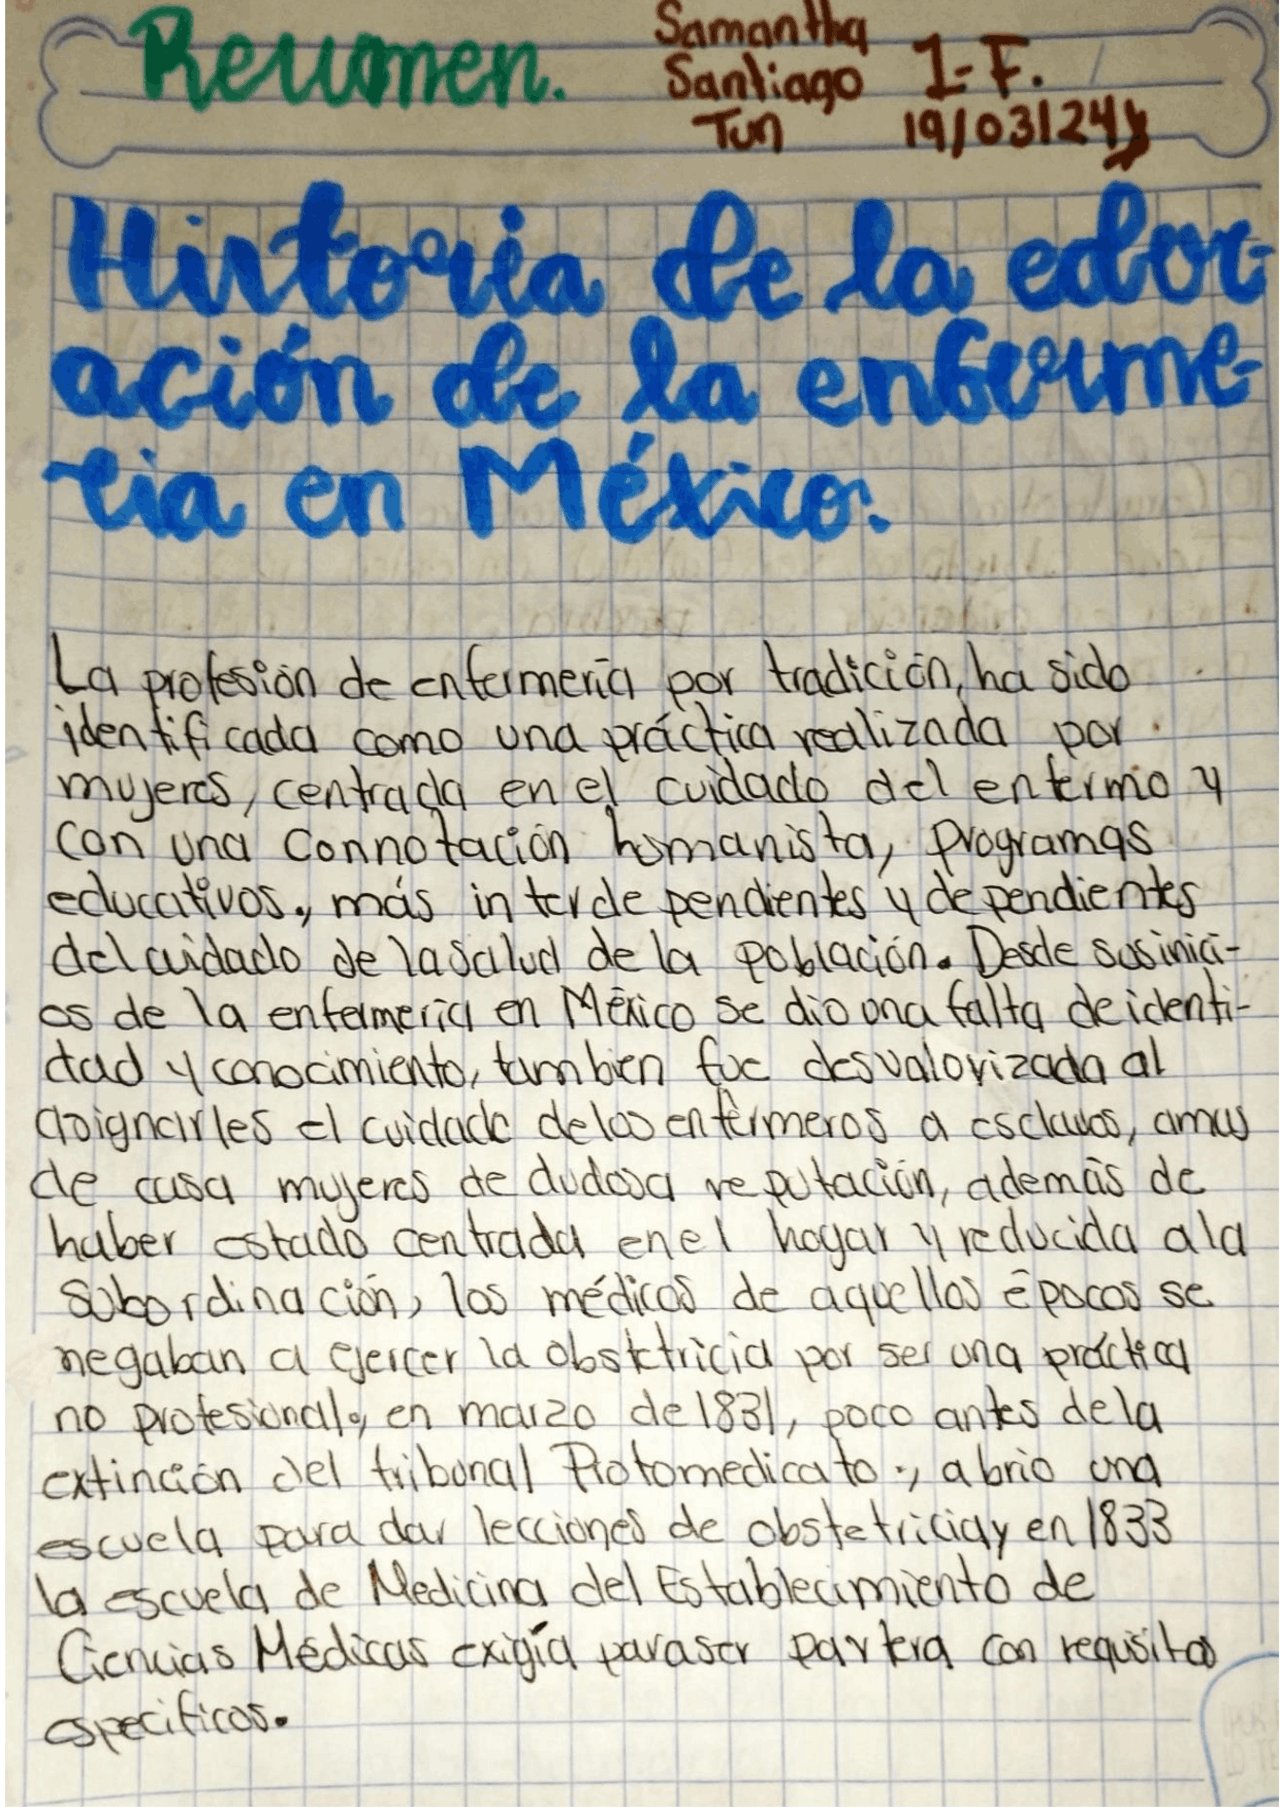 Resumen.
Samantha
Santiago
Tun
1-F.
19/03/24
Historia de la edor-
ación de la enferme-
ria en México.
La profesión de enfermería por tradición, ha sido
identificada como una práctica realizada por
mujeres, centrada en el cuidado del enfermo y
con una connotación humanista, programas
educativos., más interdependientes y dependientes
del cuidado de la salud de la población. Desde sus inici-
os de la enfermería en México se dio una falta de identi-
dad y conocimiento, tambien fue desvalorizada al
asignarles el cuidado de los enfermeros a esclavos, amas
de casa mujeres de dudosa reputación, además de
haber estado centrada en el hogar y reducida a la
subordinación, los médicos de aquellas épocas se
negaban a ejercer la obstetricia por ser una práctica
no profesional, en marzo de 1831, poco antes de la
extinción del tribunal Protomedicato., abrió una
escuela para dar lecciones de obstetricia y en 1833
la escuela de Medicina del Establecimiento de
Ciencias Médicas exigía para ser partera con requisitos
especificos.